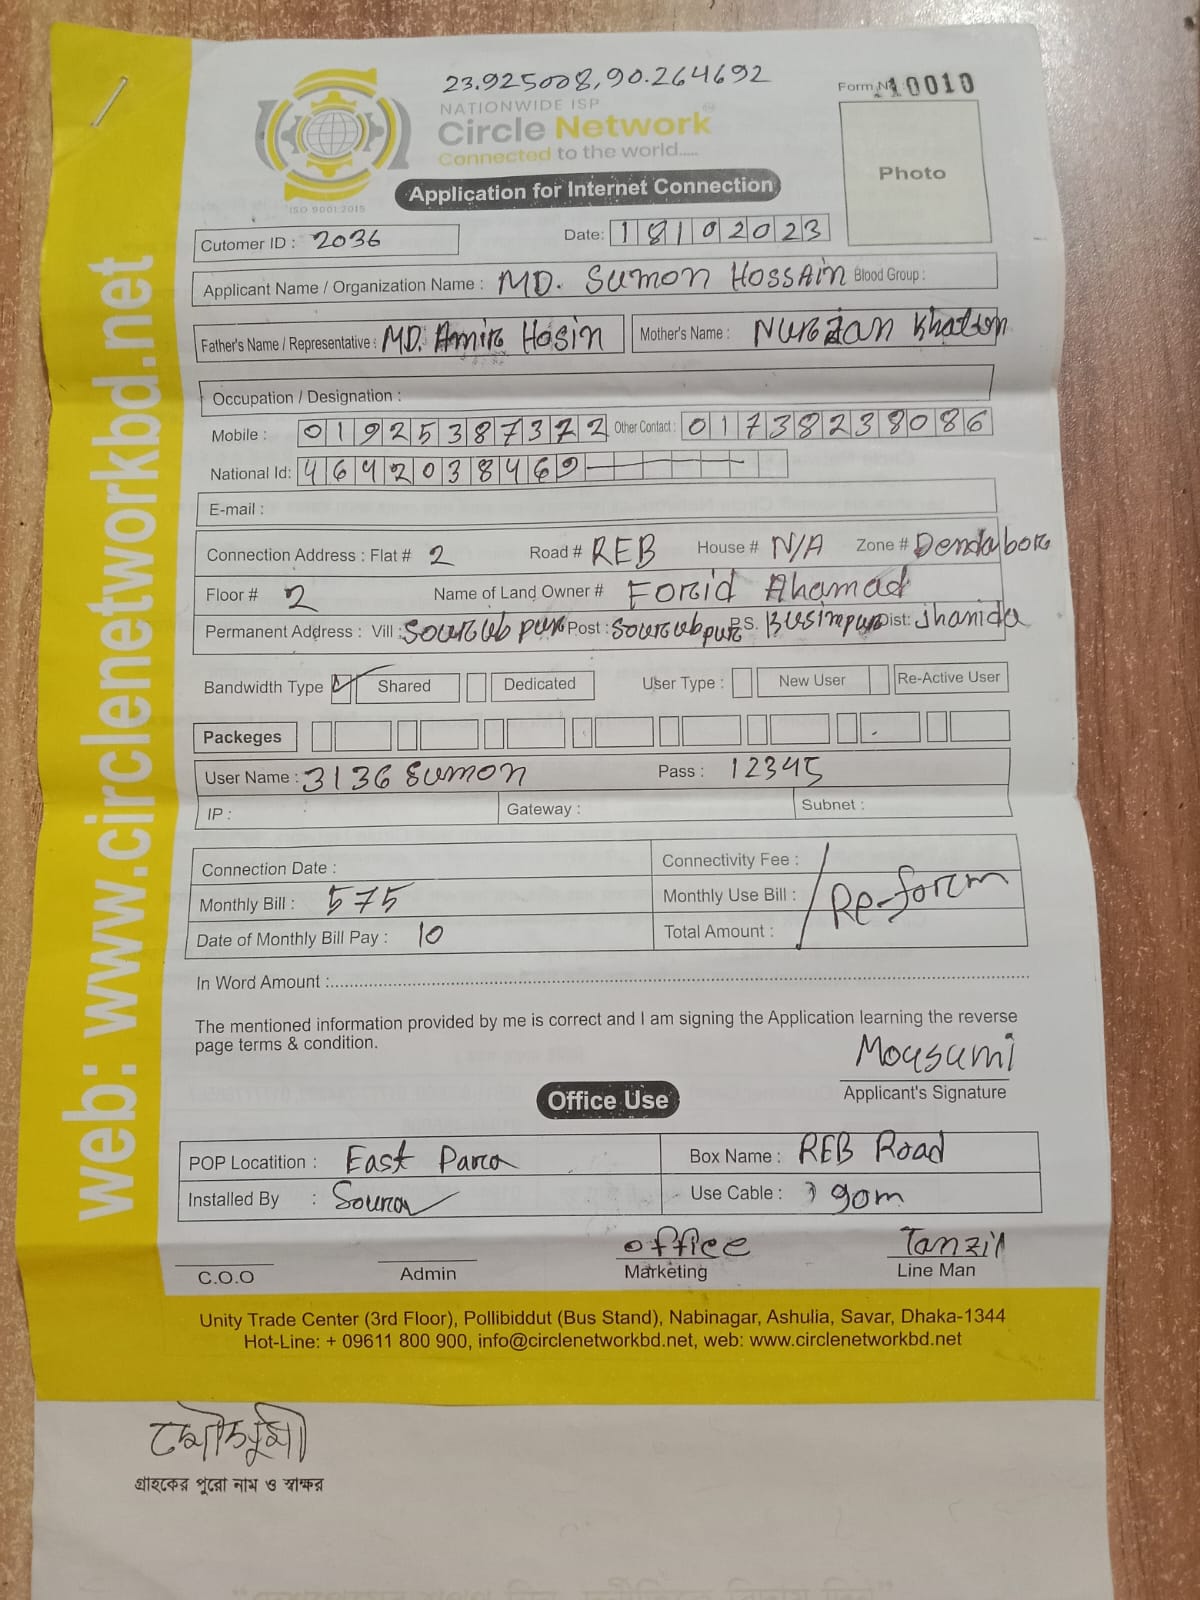 23.925008,90.264692
Form No 10010
NATIONWIDE ISP
Circle Network
Connected to the world.....
ISO 9001:2015
Photo
Application for Internet Connection
Cutomer ID : 2036
Date: 18102023
Applicant Name / Organization Name : MD. Sumon Hossain Blood Group :
Father's Name / Representative : MD. Amir Hosin Mother's Name : Nurzan Khaton
Occupation / Designation :
Mobile : 01925387372 Other Contact : 01738238086
National Id: 4642038469
E-mail :
Connection Address : Flat # 2 Road # REB House # N/A Zone # Dendabor
Floor # 2 Name of Land Owner # Forid Ahamad
Permanent Address : Vill : Sourub pur Post : Sourub pur P.S. Dist: jhanida
Bandwidth Type Shared Dedicated User Type : New User Re-Active User
Packeges
User Name : 3136 Sumon Pass : 12345
IP : Gateway : Subnet :
Connection Date : Connectivity Fee :
Monthly Bill : 575 Monthly Use Bill : Re-form
Date of Monthly Bill Pay : 10 Total Amount :
In Word Amount :
The mentioned information provided by me is correct and I am signing the Application learning the reverse
page terms & condition.
Mousumi
Applicant's Signature
Office Use
POP Locatition : East Para Box Name : REB Road
Installed By : Sourov Use Cable : 90m
office Tanzil
C.O.O Admin Marketing Line Man
Unity Trade Center (3rd Floor), Pollibiddut (Bus Stand), Nabinagar, Ashulia, Savar, Dhaka-1344
Hot-Line: + 09611 800 900, info@circlenetworkbd.net, web: www.circlenetworkbd.net
web: www.circlenetworkbd.net
মৌসুমী
গ্রাহকের পুরো নাম ও স্বাক্ষর